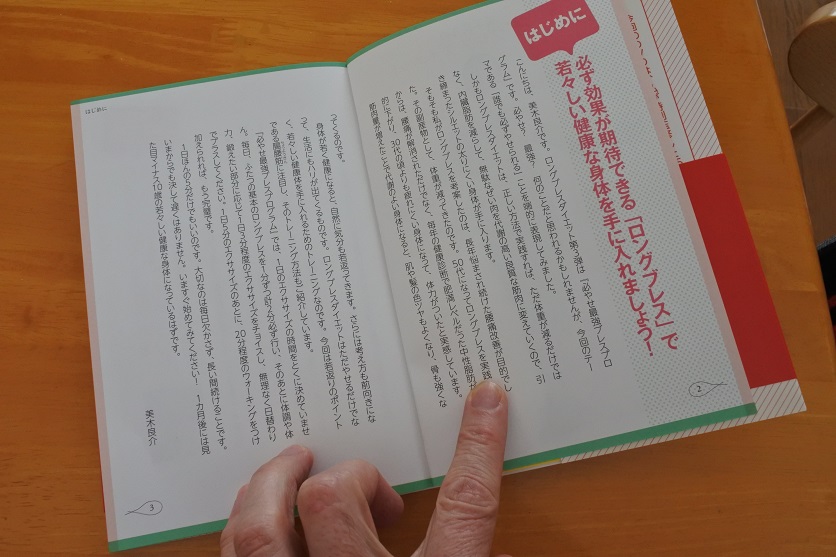 はじめに
必ず効果が期待できる「ロングブレス」で
若々しい健康な身体を手に入れましょう!
こんにちは、美木良介です。ロングブレスダイエット第2弾は「必やせ最強ブレスプロ
グラム」です。必やせ? 最強? 何のことだと思われるかもしれませんが、今回のテー
マである「誰でも必ずやせられる」ことを端的に表現してみました。
しかもロングブレスダイエットは、正しい方法で実践すれば、ただ体重が減るだけでは
なく、内臓脂肪を減らして、無駄なぜい肉を代謝の高い良質な筋肉に変えていくので、引
き締まったシルエットの太りにくい身体が手に入ります。
そもそも私がロングブレスを考案したのは、長年悩まされ続けた腰痛改善が目的でし
た。その副産物として、体重が減ってきたのです。50代になってロングブレスを実践
からは、腰痛が解消されただけでなく、毎年の健康診断で肥満レベルだった中性脂肪が
的に下がり、30代の頃よりも疲れにくい身体になって、体力がついたと実感しています。
筋肉量が増えたことで代謝のよい身体になると、肌や髪の色ツヤもよくなり、骨も強くな
2
はじめに
ってくるのです。
身体が若く健康になると、自然に気分も若返ってきます。さらには考え方も前向きにな
って、生活にもハリが出てくるものです。ロングブレスダイエットはただやせるだけでな
く、若々しい健康体を手に入れるためのトレーニングなのです。今回は若返りのポイント
である腸腰筋に注目し、そのトレーニング方法もご紹介しています。
「必やせ最強ブレスプログラム」では、1日のエクササイズの時間をとくに決めていませ
ん。毎日、ふたつの基本のロングブレスを1分ずつ計2分必ず行い、そのあとに体調や体
力、鍛えたい部分に応じて1日3分程度のエクササイズをチョイスし、無理なく日替わり
でプラスしてください。1日5分のエクササイズのあとに、20分程度のウォーキングをつけ
加えられれば、もう完璧です。
1日ほんの5分だけでもいいのです。大切なのは毎日欠かさず、長い間続けることです。
いまからでも決して遅くはありません。いますぐ始めてみてください! 1カ月後には見
た目マイナス10歳の若々しい健康な身体になっているはずです。
美木良介
3